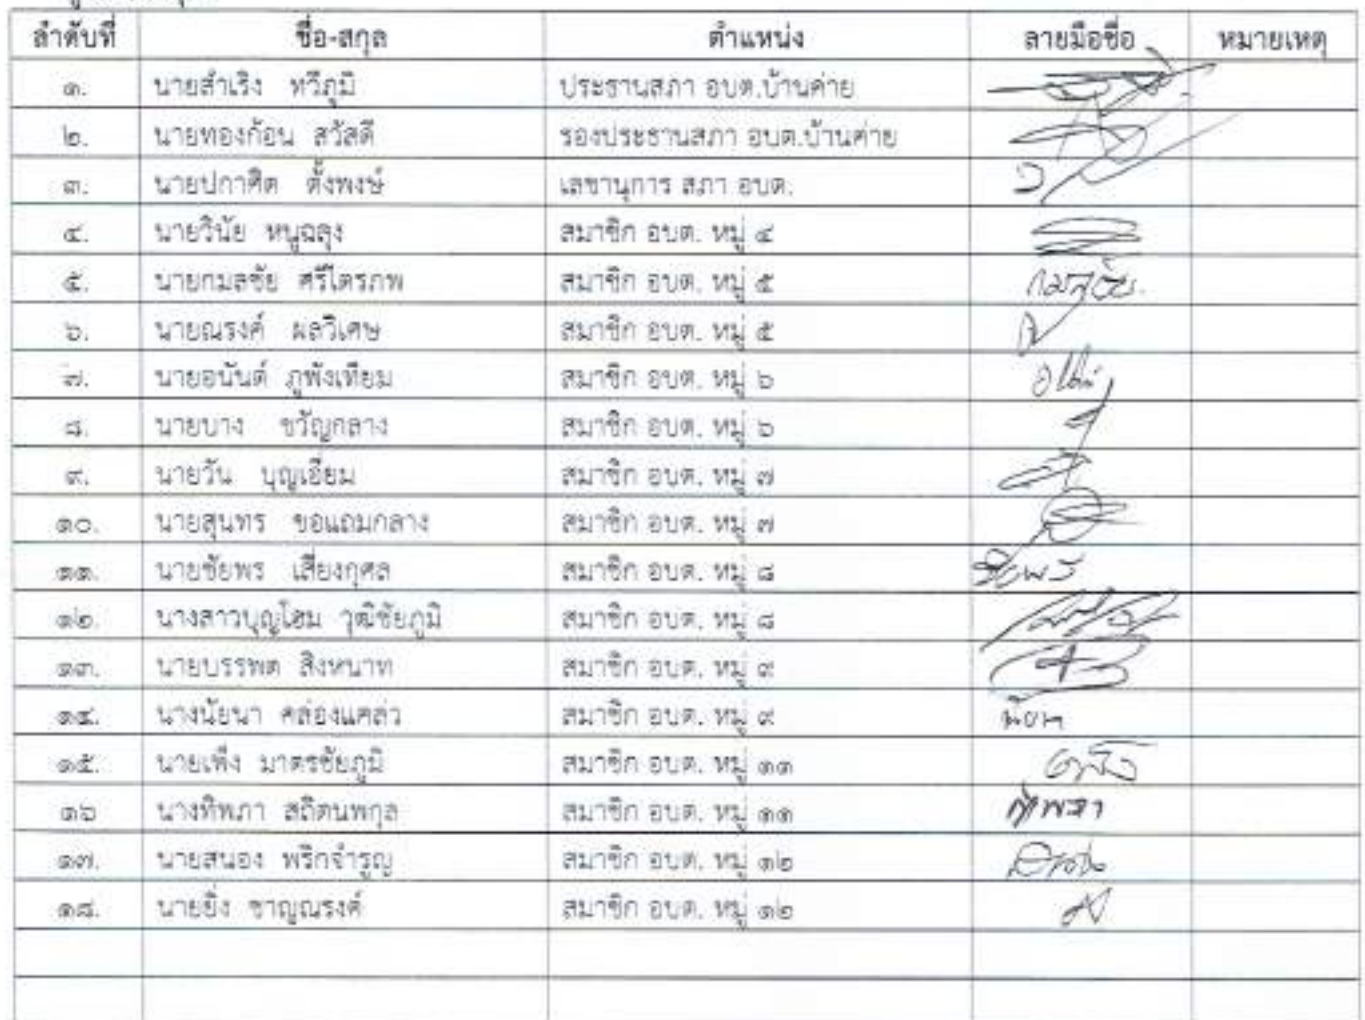 ลำดับที่ ชื่อ-สกุล ตำแหน่ง ลายมือชื่อ หมายเหตุ
๑. นายสำเริง ทวีภูมิ ประธานสภา อบต.บ้านค่าย
๒. นายทองก้อน สวัสดี รองประธานสภา อบต.บ้านค่าย
๓. นายปกาศิต ตั้งพงษ์ เลขานุการ สภา อบต.
๔. นายวินัย หนูฉลุง สมาชิก อบต. หมู่ ๔
๕. นายกมลชัย ศรีไตรภพ สมาชิก อบต. หมู่ ๕ กมลชัย.
๖. นายณรงค์ ผลวิเศษ สมาชิก อบต. หมู่ ๕
๗. นายอนันต์ ภูพังเทียม สมาชิก อบต. หมู่ ๖
๘. นายบาง ขวัญกลาง สมาชิก อบต. หมู่ ๖
๙. นายวัน บุญเอี่ยม สมาชิก อบต. หมู่ ๗
๑๐. นายสุนทร ขอแถมกลาง สมาชิก อบต. หมู่ ๗
๑๑. นายชัยพร เสี่ยงกุศล สมาชิก อบต. หมู่ ๘ ชัยพร
๑๒. นางสาวบุญโฮม วุฒิชัยภูมิ สมาชิก อบต. หมู่ ๘
๑๓. นายบรรพต สิงหนาท สมาชิก อบต. หมู่ ๙
๑๔. นางนัยนา คล่องแคล่ว สมาชิก อบต. หมู่ ๙
๑๕. นายเพ็ง มาตรชัยภูมิ สมาชิก อบต. หมู่ ๑๑
๑๖ นางทิพภา สถิตนพกุล สมาชิก อบต. หมู่ ๑๑
๑๗. นายสนอง พริกจำรูญ สมาชิก อบต. หมู่ ๑๒
๑๘. นายยิ่ง ชาญณรงค์ สมาชิก อบต. หมู่ ๑๒